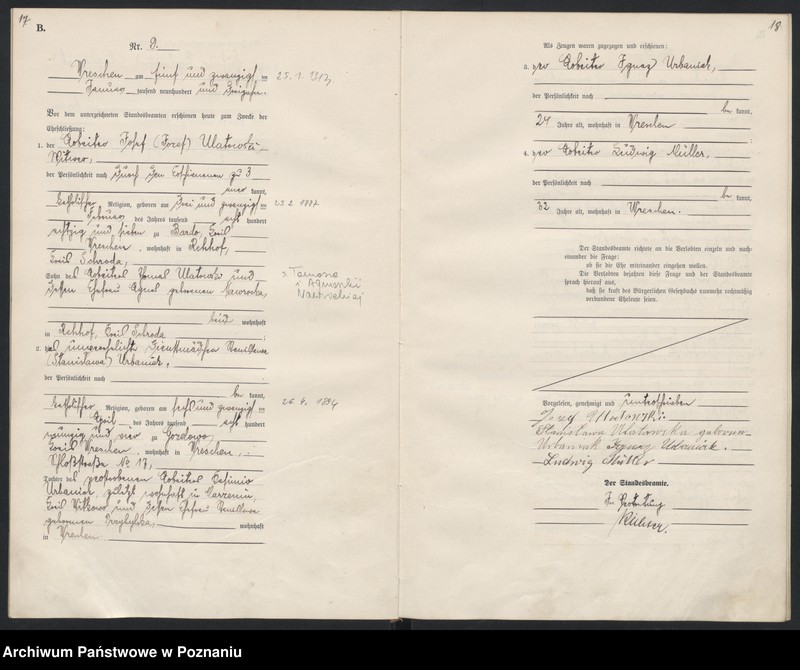 17
B.
Nr. 9.
Wreschen am fünf und zwanzigsten
Januar tausend neunhundert und dreizehn.
25.1.1913
Vor dem unterzeichneten Standesbeamten erschienen heute zum Zwecke der
Eheschließung:
1. der Arbeiter Josef (Jozef) Ulatowski
Witwer,
der Persönlichkeit nach durch den Erschienenen zu 3
kannt,
katholischer Religion, geboren am drei und zwanzigsten
23.2.1887
Februar des Jahres tausend acht hundert
achtzig und sieben zu Bardo, Kreis
Wreschen, wohnhaft in Rehhof,
Kreis Schroda,
Sohn des Arbeiters Ulatowski und
dessen Ehefrau Agnes geborenen Nawrocka,
s. Tomasza
i Agnieszki
Nawrockiej
beide wohnhaft
in Rehhof, Kreis Schroda
2. die unverehelichte Dienstmädchen
(Stanislawa) Urbaniak,
der Persönlichkeit nach
be kannt,
katholischer Religion, geboren am sechs und zwanzigsten
26.4.1894
April des Jahres tausend acht hundert
neunzig und vier zu Gozdowo,
Kreis Wreschen, wohnhaft in Wreschen,
Schloßstraße No 17,
Tochter des verstorbenen Arbeiters Casimir
Urbaniak, zuletzt wohnhaft in
Kreis Witkowo und dessen Ehefrau
geborenen Przybylska, wohnhaft
in Wreschen
18
Als Zeugen waren zugezogen und erschienen:
3. der Arbeiter Ignaz Urbaniak,
der Persönlichkeit nach
be kannt,
24 Jahre alt, wohnhaft in Wreschen
4. der Arbeiter Ludwig Müller,
der Persönlichkeit nach
be kannt,
32 Jahre alt, wohnhaft in Wreschen.
Der Standesbeamte richtete an die Verlobten einzeln und nach-
einander die Frage:
ob sie die Ehe miteinander eingehen wollen.
Die Verlobten bejahten diese Frage und der Standesbeamte
sprach hierauf aus,
daß sie kraft des Bürgerlichen Gesetzbuchs nunmehr rechtmäßig
verbundene Eheleute seien.
Vorgelesen, genehmigt und unterschrieben
Józef Ulatowski
Stanislawa Ulatowska geborene
Urbaniak Ignacy Urbaniak.
Ludwig Müller
Der Standesbeamte.
In Vertretung
Archiwum Państwowe w Poznaniu